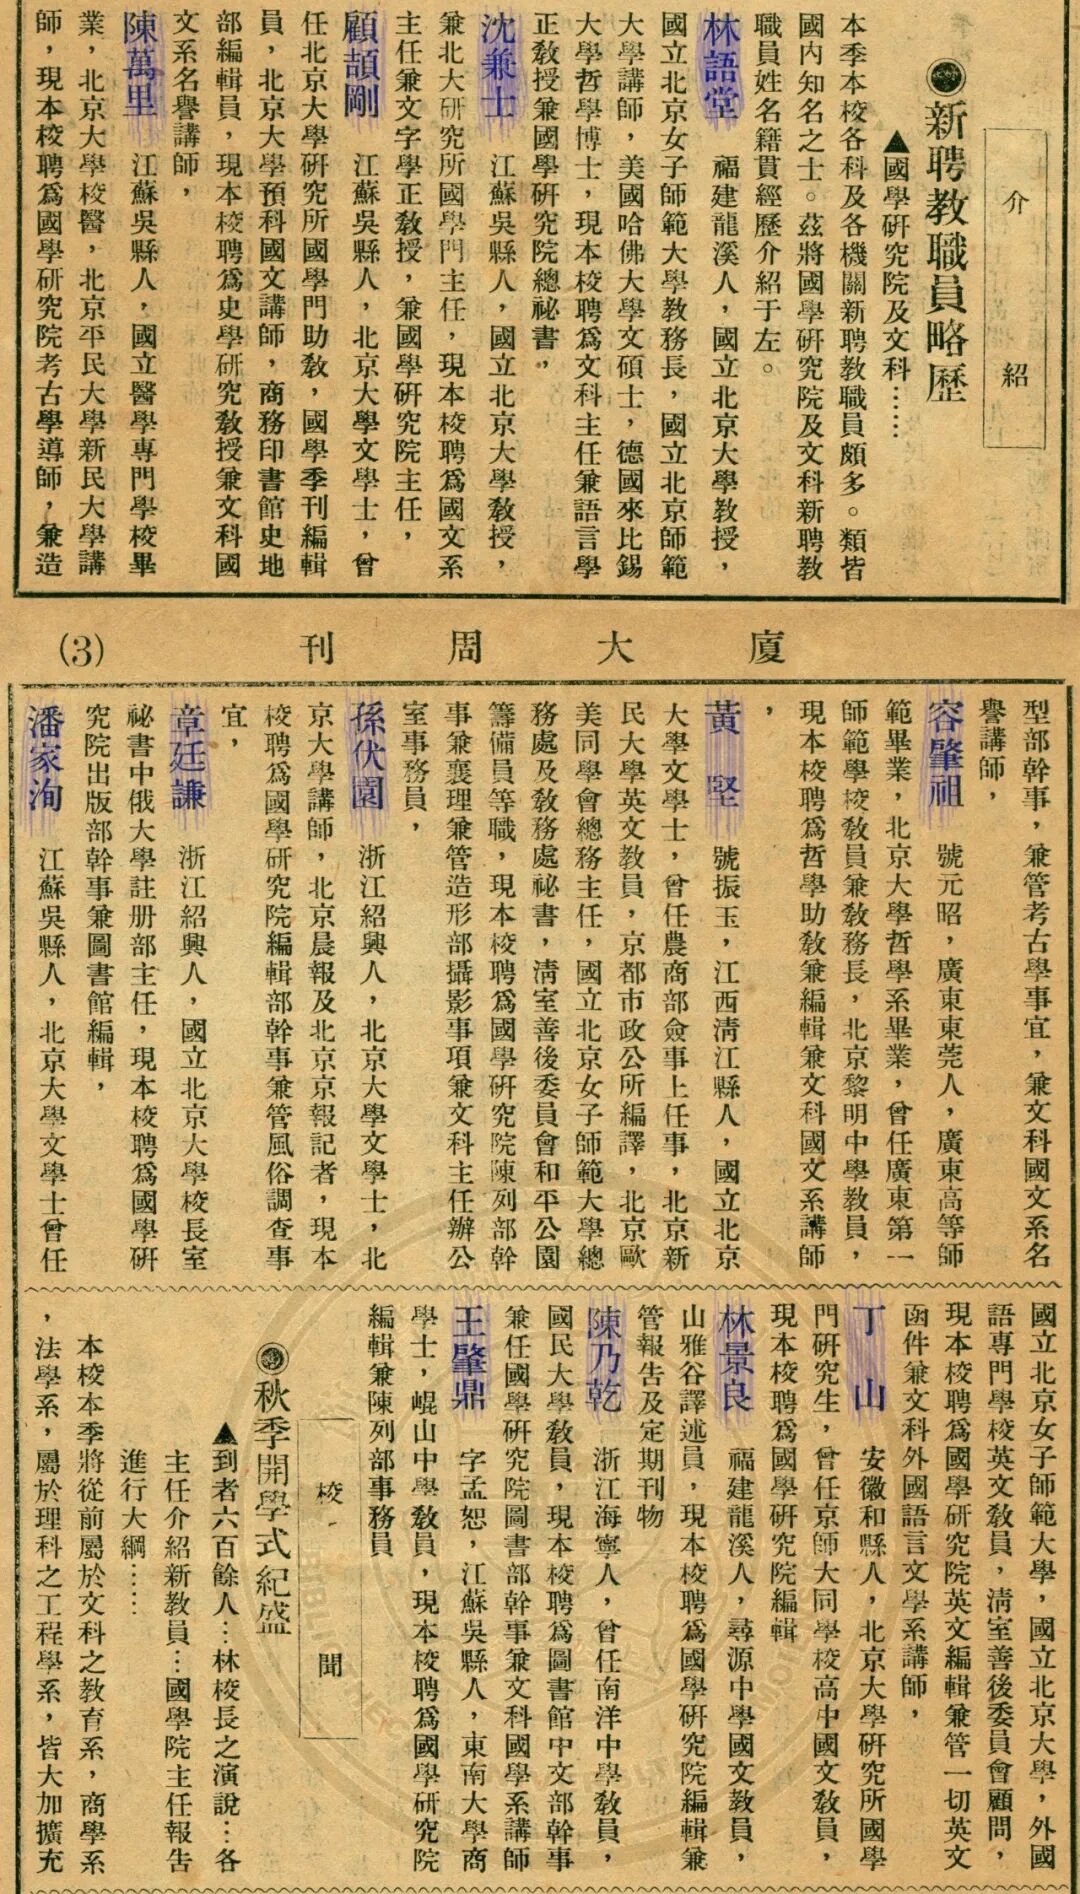 介紹
◉新聘教職員略歷
▲國學研究院及文科……
本季本校各科及各機關新聘教職員頗多。類皆
國內知名之士。茲將國學研究院及文科新聘教
職員姓名籍貫經歷介紹于左。
林語堂　福建龍溪人，國立北京大學教授，
國立北京女子師範大學教務長，國立北京師範
大學講師，美國哈佛大學文碩士，德國來比錫
大學哲學博士，現本校聘爲文科主任兼語言學
正教授兼國學研究院總祕書，
沈兼士　江蘇吳縣人，國立北京大學教授，
兼北大研究所國學門主任，現本校聘爲國文系
主任兼文字學正教授，兼國學研究院主任，
顧頡剛　江蘇吳縣人，北京大學文學士，曾
任北京大學研究所國學門助教，國學季刊編輯
員，北京大學預科國文講師，商務印書館史地
部編輯員，現本校聘爲史學研究教授兼文科國
文系名譽講師，
陳萬里　江蘇吳縣人，國立醫學專門學校畢
業，北京大學校醫，北京平民大學新民大學講
師，現本校聘爲國學研究院考古學導師，兼造
廈大周刊　(3)
型部幹事，兼管考古學事宜，兼文科國文系名
譽講師，
容肇祖　號元昭，廣東東莞人，廣東高等師
範畢業，北京大學哲學系畢業，曾任廣東第一
師範學校教員兼教務長，北京黎明中學教員，
現本校聘爲哲學助教兼編輯兼文科國文系講師
，
黃　堅　號振玉，江西清江縣人，國立北京
大學文學士，曾任農商部僉事上任事，北京新
民大學英文教員，京都市政公所編譯，北京歐
美同學會總務主任，國立北京女子師範大學總
務處及教務處祕書，清室善後委員會和平公園
籌備員等職，現本校聘爲國學研究院陳列部幹
事兼襄理兼管造形部攝影事項兼文科主任辦公
室事務員，
孫伏園　浙江紹興人，北京大學文學士，北
京大學講師，北京晨報及北京京報記者，現本
校聘爲國學研究院編輯部幹事兼管風俗調查事
宜，
章廷謙　浙江紹興人，國立北京大學校長室
祕書中俄大學註册部主任，現本校聘爲國學研
究院出版部幹事兼圖書館編輯，
潘家洵　江蘇吳縣人，北京大學文學士曾任
國立北京女子師範大學，國立北京大學，外國
語專門學校英文教員，清室善後委員會顧問，
現本校聘爲國學研究院英文編輯兼管一切英文
函件兼文科外國語言文學系講師，
丁　山　安徽和縣人，北京大學研究所國學
門研究生，曾任京師大同學校高中國文教員，
現本校聘爲國學研究院編輯
林景良　福建龍溪人，尋源中學國文教員，
山雅谷譯述員，現本校聘爲國學研究院編輯兼
管報告及定期刊物
陳乃乾　浙江海寧人，曾任南洋中學教員，
國民大學教員，現本校聘爲圖書館中文部幹事
兼任國學研究院圖書部幹事兼文科國學系講師
王肇鼎　字孟恕，江蘇吳縣人，東南大學商
學士，崐山中學教員，現本校聘爲國學研究院
編輯兼陳列部事務員
校聞
◉秋季開學式紀盛
▲到者六百餘人…林校長之演說…各
主任介紹新教員…國學院主任報告
進行大綱……
本校本季將從前屬於文科之教育系，商學系
，法學系，屬於理科之工程學系，皆大加擴充